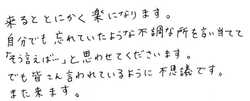 来るととにかく楽になります。
自分でも忘れていたような不調な所を言い当てて
“そう言えば…”と思わせてくださいます。
でも皆さん言われているように不思議です。
また来ます。